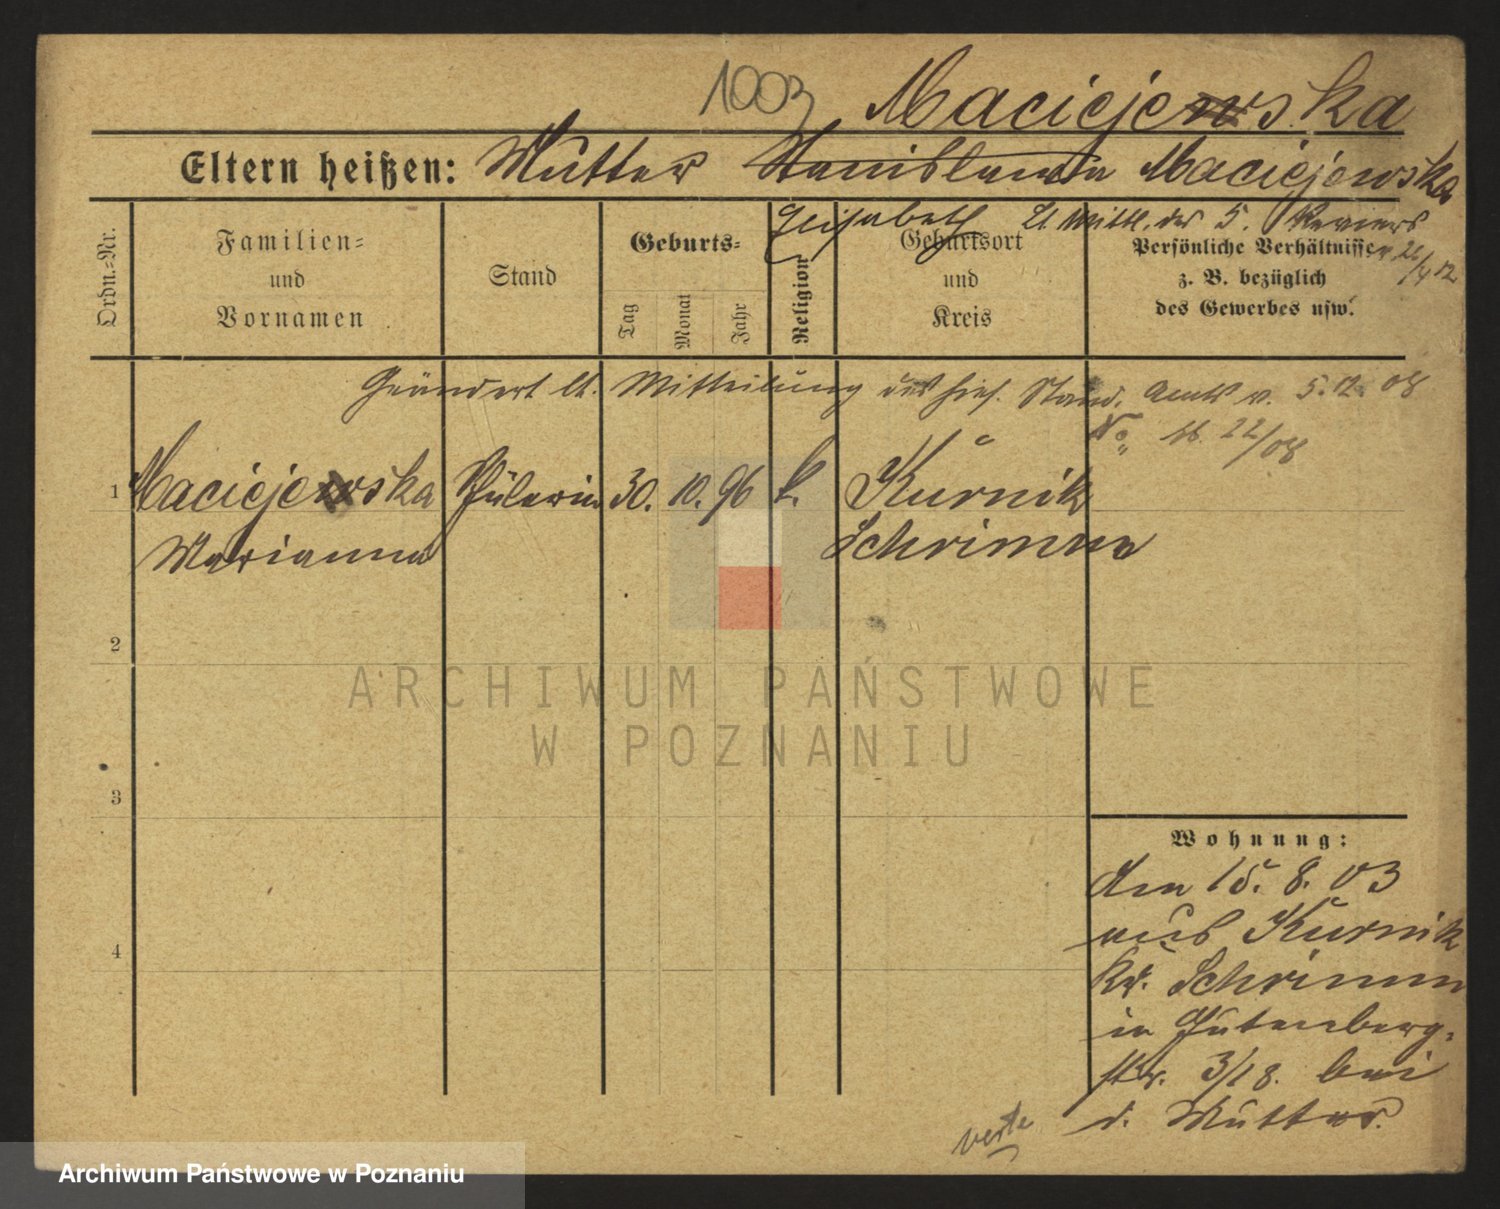 1003 Maciejewska
Eltern heißen: Mutter Stanislawa Maciejewska
Elisabeth Lt Mittl. des 5. Reviers
v. 26/4 12
Ordn.-Nr.
Familien-
und
Vornamen
Stand
Geburts-
Tag
Monat
Jahr
Religion
Geburtsort
und
Kreis
Persönliche Verhältnisse
z. B. bezüglich
des Gewerbes usw.
Geändert lt. Mitteilung des hies. Stand. Amts v. 5.12.08
No. 22/08
1 Maciejewska Schülerin 30. 10. 96 k. Kurnik
Marianna Schrimm
2
3
4
Wohnung:
den 15. 8. 03
aus Kurnik
Kr. Schrimm
in Gutenberg-
str. 3/18. bei
d. Mutter.
verte
ARCHIWUM PAŃSTWOWE
W POZNANIU
Archiwum Państwowe w Poznaniu